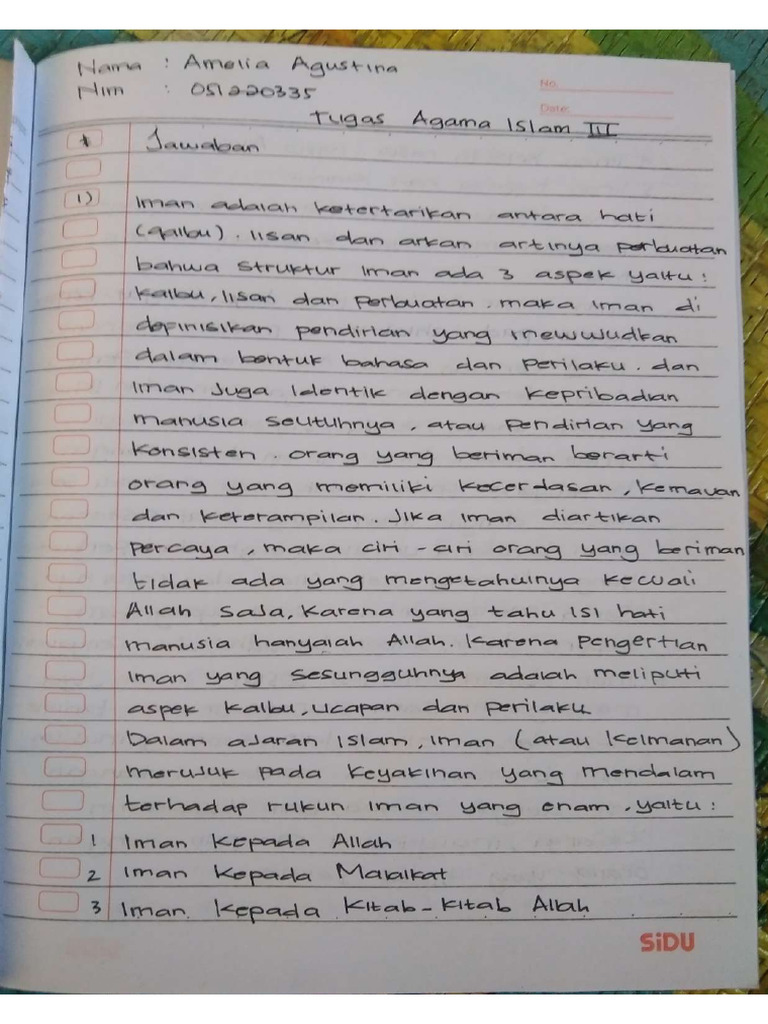 Nama : Amelia Agustina
Nim : 051220335
No.
Date:
Tugas Agama Islam III
* Jawaban
1) Iman adalah ketertarikan antara hati
(qalbu). lisan dan arkan artinya perbuatan
bahwa struktur iman ada 3 aspek yaitu:
kalbu, lisan dan perbuatan. maka iman di
definisikan pendirian yang mewwudkan
dalam bentuk bahasa dan perilaku. dan
Iman Juga Identik dengan kepribadian
manusia seutuhnya, atau pendirian yang
konsisten. orang yang beriman berarti
orang yang memiliki kecerdasan, kemauan
dan keterampilan. Jika iman diartikan
percaya, maka ciri-ciri orang yang beriman
tidak ada yang mengetahuinya kecuali
Allah saja, karena yang tahu isi hati
manusia hanyalah Allah. Karena pengertian
Iman yang sesungguhnya adalah meliputi
aspek kalbu, ucapan dan perilaku
Dalam ajaran Islam, iman (atau keimanan)
merujuk pada keyakinan yang mendalam
terhadap rukun iman yang enam, yaitu:
1 Iman kepada Allah
2 Iman kepada Malaikat
3 Iman. kepada Kitab-kitab Allah
SiDU